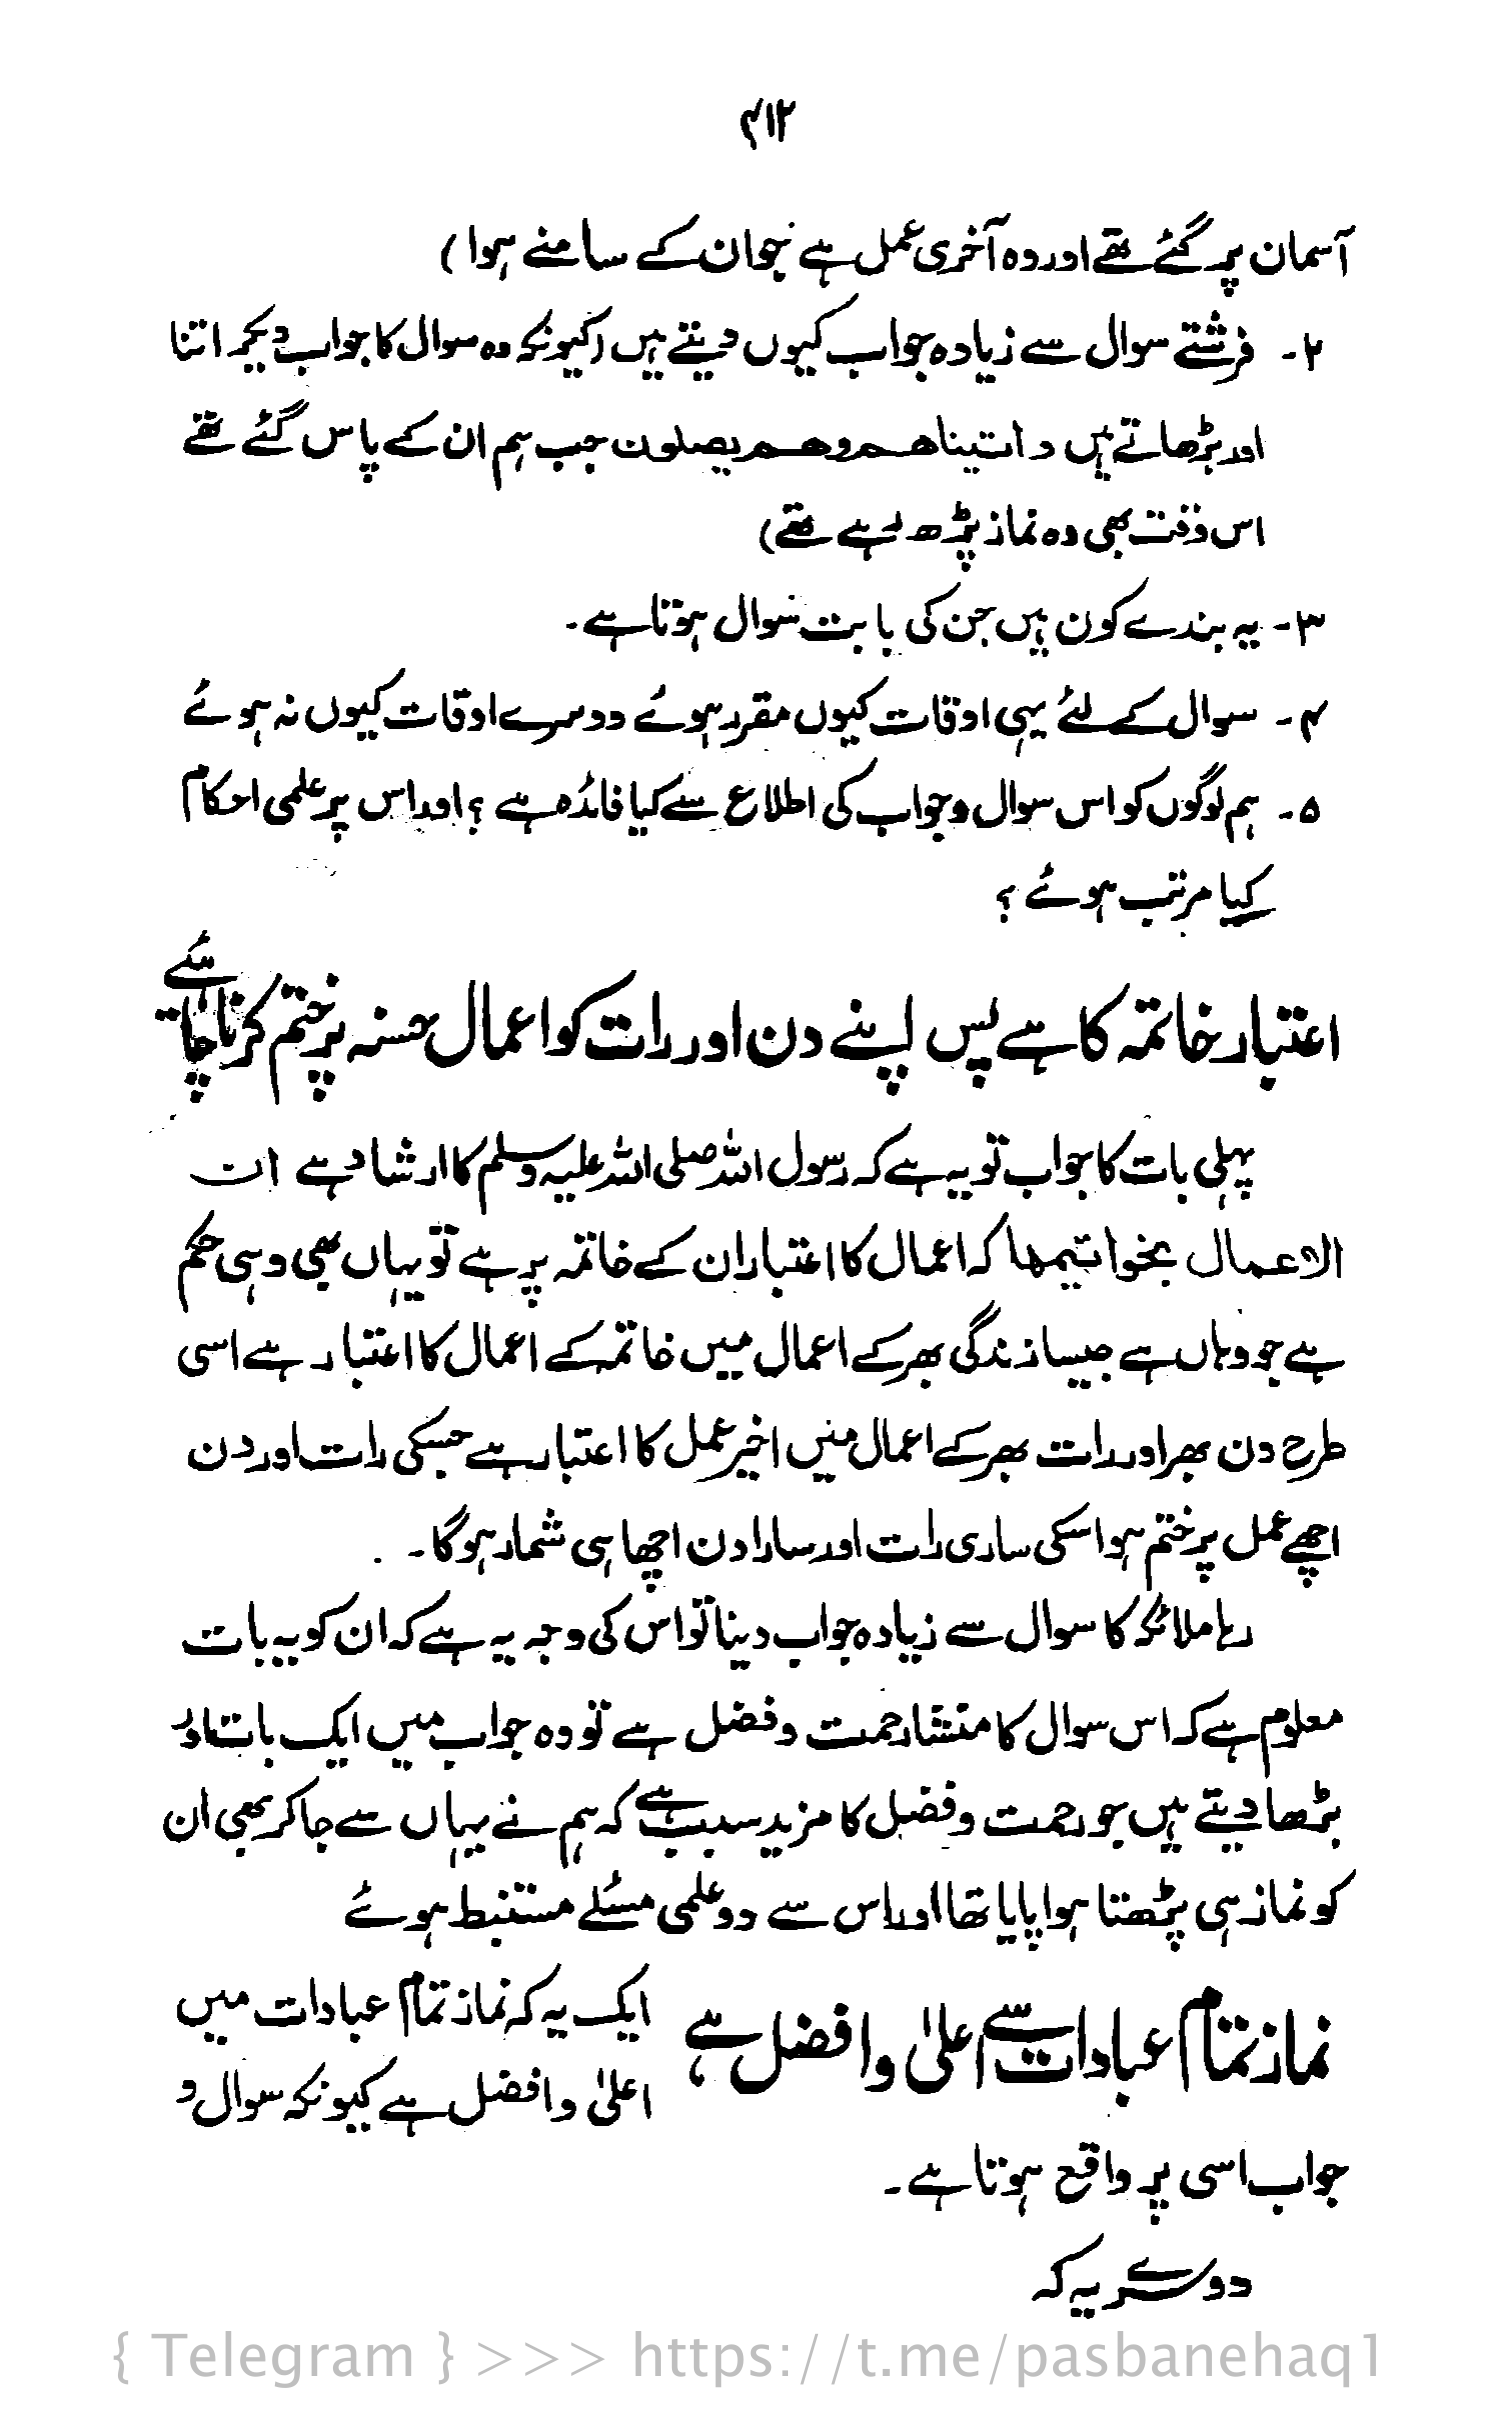 ۴۱۲
آسمان پر گئے تھے اور وہ آخری عمل ہے جو ان کے سامنے ہوا)
۲۔ فرشتے سوال سے زیادہ جواب کیوں دیتے ہیں (کیونکہ وہ سوال کا جواب دیکر اتنا
اور بڑھاتے ہیں د اتیناھم وھم یصلون جب ہم ان کے پاس گئے تھے
اس وقت بھی وہ نماز پڑھ رہے تھے)
۳۔ یہ بندے کون ہیں جن کی بابت سوال ہوتا ہے۔
۴۔ سوال کے لئے یہی اوقات کیوں مقرر ہوئے دوسرے اوقات کیوں نہ ہوئے
۵۔ ہم لوگوں کو اس سوال و جواب کی اطلاع سے کیا فائدہ ہے ؟ اور اس پر علمی احکام
کیا مرتب ہوئے ؟
اعتبار خاتمہ کا ہے پس اپنے دن اور رات کو اعمال حسنہ پر ختم کرنا چاہئے
پہلی بات کا جواب تو یہ ہے کہ رسول اللہ صلی اللہ علیہ وسلم کا ارشاد ہے ان
الاعمال بخواتیمھا کہ اعمال کا اعتبار ان کے خاتمہ پر ہے تو یہاں بھی وہی حکم
ہے جو وہاں ہے جیسا زندگی بھر کے اعمال میں خاتمہ کے اعمال کا اعتبار ہے اسی
طرح دن بھر اور رات بھر کے اعمال میں اخیر عمل کا اعتبار ہے جسکی رات اور دن
اچھے عمل پر ختم ہوا سکی ساری رات اور سارا دن اچھا ہی شمار ہوگا۔
رہا ملائکہ کا سوال سے زیادہ جواب دینا تو اس کی وجہ یہ ہے کہ ان کو یہ بات
معلوم ہے کہ اس سوال کا منشا رحمت و فضل ہے تو وہ جواب میں ایک بات اور
بڑھا دیتے ہیں جو رحمت و فضل کا مزید سبب ہے کہ ہم نے یہاں سے جا کر بھی ان
کو نماز ہی پڑھتا ہوا پایا تھا اور اس سے دو علمی مسئلے مستنبط ہوئے
نماز تمام عبادات سے اعلیٰ و افضل ہے
ایک یہ کہ نماز تمام عبادات میں
اعلیٰ و افضل ہے کیونکہ سوال و
جواب اسی پر واقع ہوتا ہے۔
دوسرے یہ کہ
{ Telegram } >>> https://t.me/pasbanehaq1